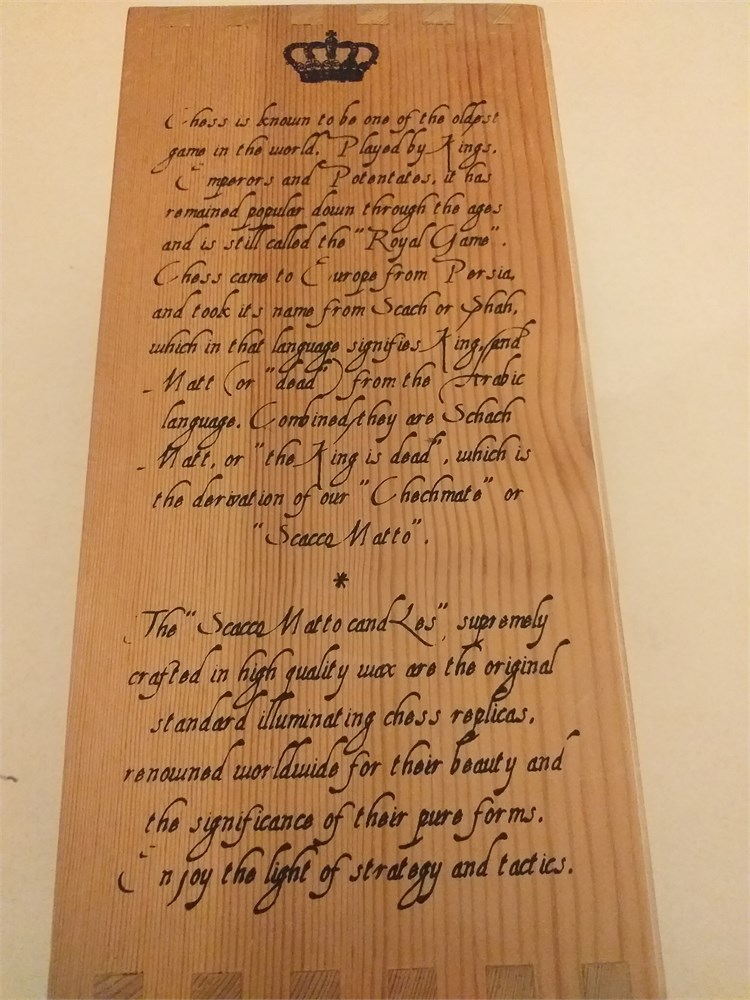 Chess is known to be one of the oldest
game in the world. Played by Kings,
Emperors and Potentates, it has
remained popular down through the ages
and is still called the "Royal Game".
Chess came to Europe from Persia,
and took its name from Scach or Shah,
which in that language signifies King, and
Matt (or "dead") from the Arabic
language. Combined, they are Schach
Matt, or "the King is dead", which is
the derivation of our "Chechmate" or
"Scacco Matto".
*
The "Scacco Matto candLes", supremely
crafted in high quality wax are the original
standard illuminating chess replicas,
renowned worldwide for their beauty and
the significance of their pure forms.
Enjoy the light of strategy and tactics.